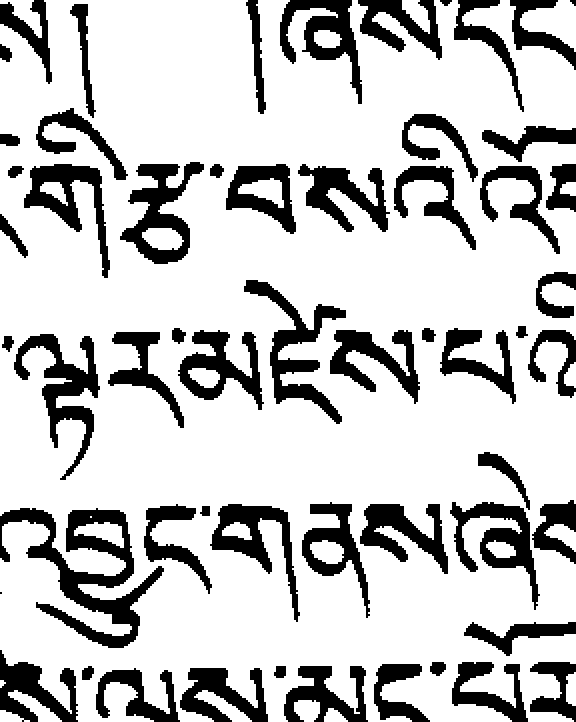 ས། །ཞེས་དང
གི་རྩ་བ་སའི་འོ
་ལྟར་མཛེས་པ་འི
འབྱུང་གནས་ཞེས
ས་ལས་མང་པོར